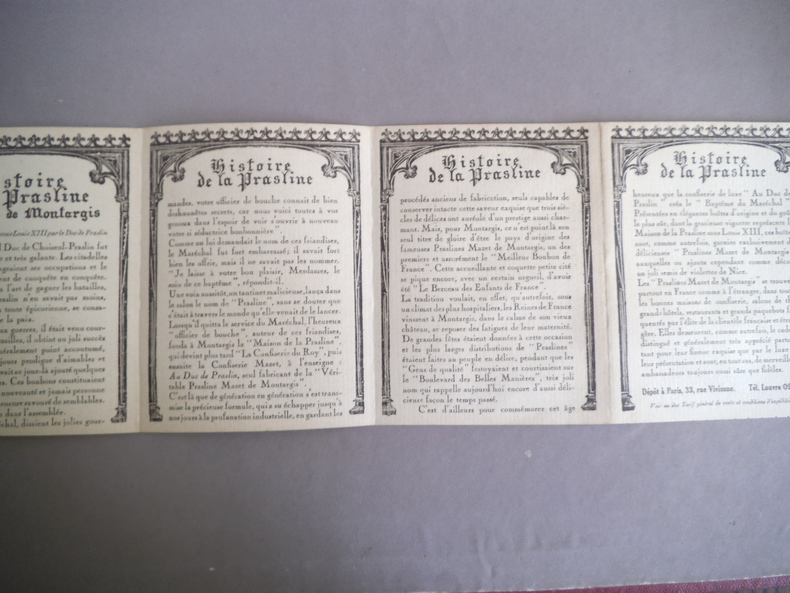 stoire
Prasline
de Montargis
sous Louis XIII par le Duc de Praslin
l Duc de Choiseul-Praslin fut
et très galant. Les citadelles
ses occupations et le
de conquête en conquête.
l'art de gagner les batailles,
praslin n'en savait pas moins,
toute épicurienne, se
e la paix.
guerres, il était venu
d'aimables et
ajouté quelques
Ces bonbons constituaient
nouveauté et jamais personne
savouré de semblables.
dans l'assemblée.
disaient les jolies gour-
Histoire
de la Prasline
mandes, votre officier de bouche connait de bien
dohandres secrets, car nous voici toutes à vos
genoux dans l'espoir de voir s'ouvrir à nouveau
votre si séductrice bonbonnière".
Comme on lui demandait le nom de ces friandises,
le Maréchal fut fort embarrassé; il savait fort
bien les offrir, mais il ne savait pas les nommer.
"Je laisse à votre bon plaisir, Mesdames, le
soin de ce baptême", répondit-il.
Une voix aussitôt, un tantinet malicieuse, lança dans
le salon le nom de "Praslines", sans se douter que
c'était à travers le monde qu'elle venait de le lancer.
Lorsqu'il quitta le service du Maréchal, l'heureux
"officier de bouche", auteur de ces friandises,
fonda à Montargis la "Maison de la Prasline",
qui devint plus tard "La Confiserie du Roy", puis
ensuite la Confiserie Mazet, à l'enseigne :
Au Duc de Praslin, seul fabricant de la "Véri-
table Prasline Mazet de Montargis".
C'est là que de génération en génération s'est trans-
mise la précieuse formule, qui a su échapper jusqu'à
nos jours à la profanation industrielle, en gardant les
Histoire
de la Prasline
procédés anciens de fabrication, seuls capables de
conserver intacte cette saveur exquise que trois siè-
cles de délices ont auréolé d'un prestige aussi char-
mant. Mais, pour Montargis, ce n'est point là son
seul titre de gloire d'être le pays d'origine des
fameuses Praslines Mazet de Montargis, un des
premiers et assurément le "Meilleur Bonbon de
France". Cette accueillante et coquette petite cité
se pique encore, avec un certain orgueil, d'avoir
été "Le Berceau des Enfants de France".
La tradition voulait, en effet, qu'autrefois, sous
un climat des plus hospitaliers, les Reines de France
vinssent à Montargis, dans le calme de son vieux
château, se reposer des fatigues de leur maternité.
De grandes fêtes étaient données à cette occasion
et les plus larges distributions de "Praslines"
étaient faites au peuple en délire, pendant que les
"Gens de qualité" festoyaient et courtisaient sur
le "Boulevard des Belles Manières", très joli
nom qui rappelle aujourd'hui encore d'aussi déli-
cieuse façon le temps passé.
C'est d'ailleurs pour commémorer cet âge
Histoire
de la Prasline
heureux que la confiserie de luxe "Au Duc de
Praslin" créa le "Baptême du Maréchal"
Présentées en élégantes boîtes d'origine et du goût
le plus sûr, dont la gracieuse vignette représente
Maison de la Prasline sous Louis XIII, ces boîtes
sont, comme autrefois, garnies exclusivement de
délicieuses "Praslines Mazet de Montargis"
auxquelles on ajoute cependant comme
un joli semis de violettes de Nice.
Les "Praslines Mazet de Montargis" se trouvent
partout en France comme à l'étranger, dans toutes
les bonnes maisons de confiserie, salons de
grands hôtels, restaurants et grands paquebots
quentés par l'élite de la clientèle française et étran-
gère. Elles demeurent, comme autrefois, le
distingué et généralement très apprécié
tant pour leur finesse exquise que par le luxe
leur présentation et sont, en tous cas, de merveilleux
ambassadeurs toujours aussi sûrs que fidèles.
Dépôt à Paris, 33, rue Vivienne. Tél. Louvre
Voir au dos Tarif général de vente et conditions d'expédition